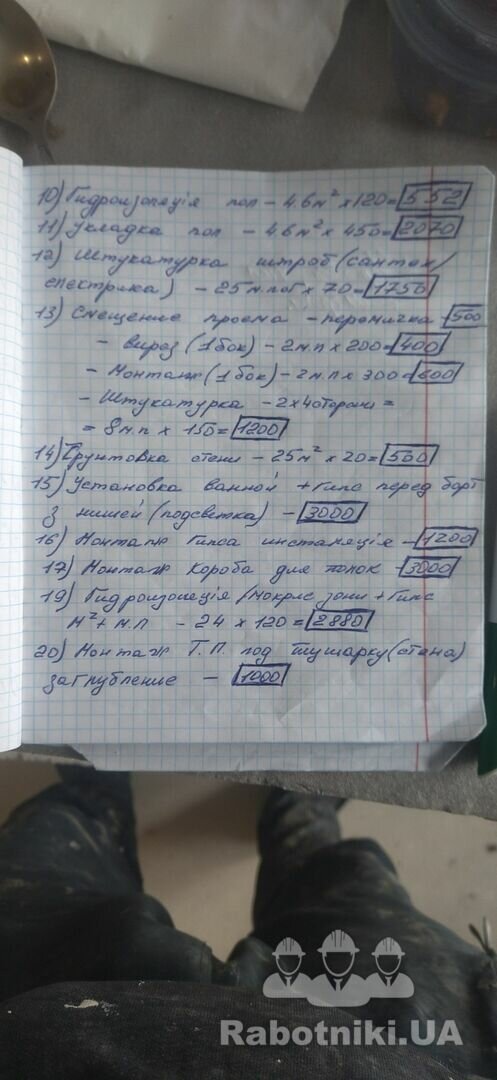 10) Гидроизопяція пол - 4.6м² х 120= 552
11) Укладка пол - 4.6м² х 450= 2070
12) Штукатурка штроб(сантех/
електрика) - 25м.пог х 70= 1750
13) Смещение проема - перемичка - 500
- вирез (1бок) - 2м.п х 200= 400
- Монтаж (1бок) - 2м.п х 300= 600
- Штукатурка - 2х4сторони =
= 8м.п х 150= 1200
14) Грунтовка стени - 25м² х 20= 500
15) Установка ванной + Гипс перед борт
з нишей (подсветка) - 3000
16) Монтаж Гипса инсталяція - 1200
17) Монтаж короба для полок - 3000
19) Гидроизопеція/мокрис зони + Гипс
м²+м.п - 24 х 120= 2880
20) Монтаж Т.П. под тушарку(стена)
заглубление - 1000
Rabotniki.UA